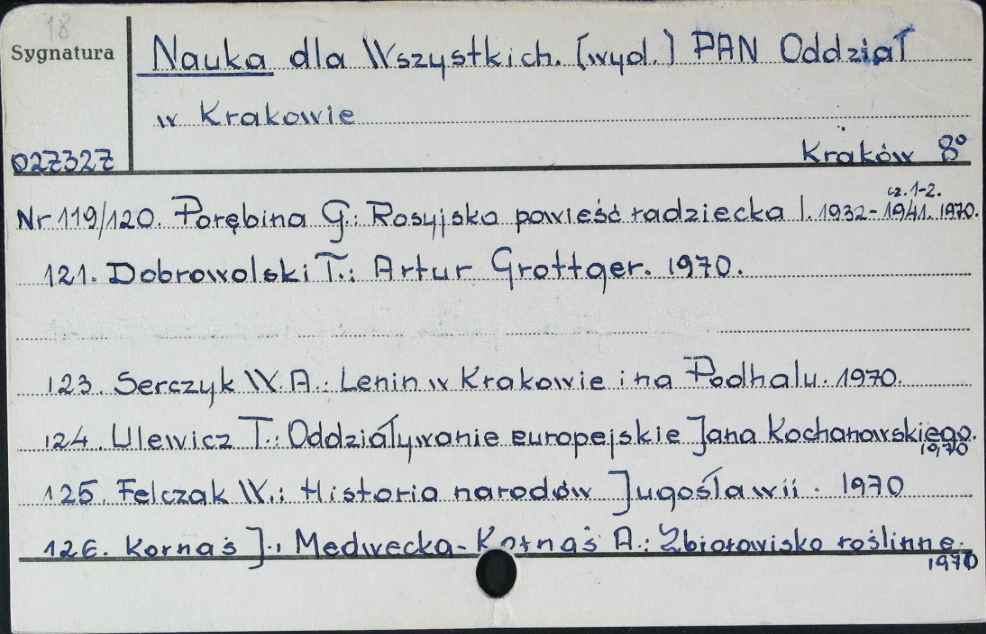 18
Sygnatura
Nauka dla Wszystkich. (wyd.) PAN Oddział
w Krakowie
027327
Kraków 8°
cz. 1-2.
Nr 119/120. Porębina G.: Rosyjska powieść radziecka I. 1932-1941. 1970.
121. Dobrowolski T.: Artur Grottger. 1970.
123. Serczyk W. A.: Lenin w Krakowie i na Podhalu. 1970.
124. Ulewicz T.: Oddziaływanie europejskie Jana Kochanowskiego.
1970
125. Felczak W.: Historia narodów Jugosławii. 1970
126. Kornaś J., Medwecka-Kornaś A.: Zbiorowisko roślinne.
1970